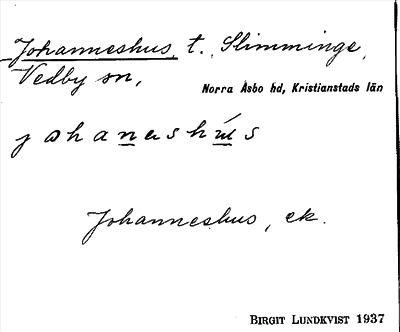 Johanneshus, t. Slimminge,
Vedby sn,
Norra Åsbo hd, Kristianstads län
johanəshús
Johanneshus, ek.
BIRGIT LUNDKVIST 1937